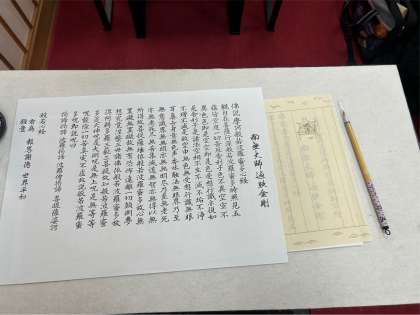 南無大師遍照金剛
佛説摩訶般若波羅蜜多心経
観自在菩薩行深般若波羅蜜多時照見五
蘊皆空度一切苦厄舎利子色不異空空不
異色色即是空空即是色受想行識亦復如
是舎利子是諸法空相不生不滅不垢不浄
不増不減是故空中無色無受想行識無眼
耳鼻舌身意無色声香味触法無眼界乃至
無意識界無無明亦無無明尽乃至無老死
亦無老死尽無苦集滅道無智亦無得以無
所得故菩提薩埵依般若波羅蜜多故心無
罣礙無罣礙故無有恐怖遠離一切顛倒夢
想究竟涅槃三世諸佛依般若波羅蜜多故
得阿耨多羅三藐三菩提故知般若波羅蜜
多是大神呪是大明呪是無上呪是無等等
呪能除一切苦真実不虚故説般若波羅蜜
多呪即説呪曰
掲諦掲諦 波羅掲諦 波羅僧掲諦 菩提薩婆訶
般若心経
為 報恩謝徳 世界平和
願意